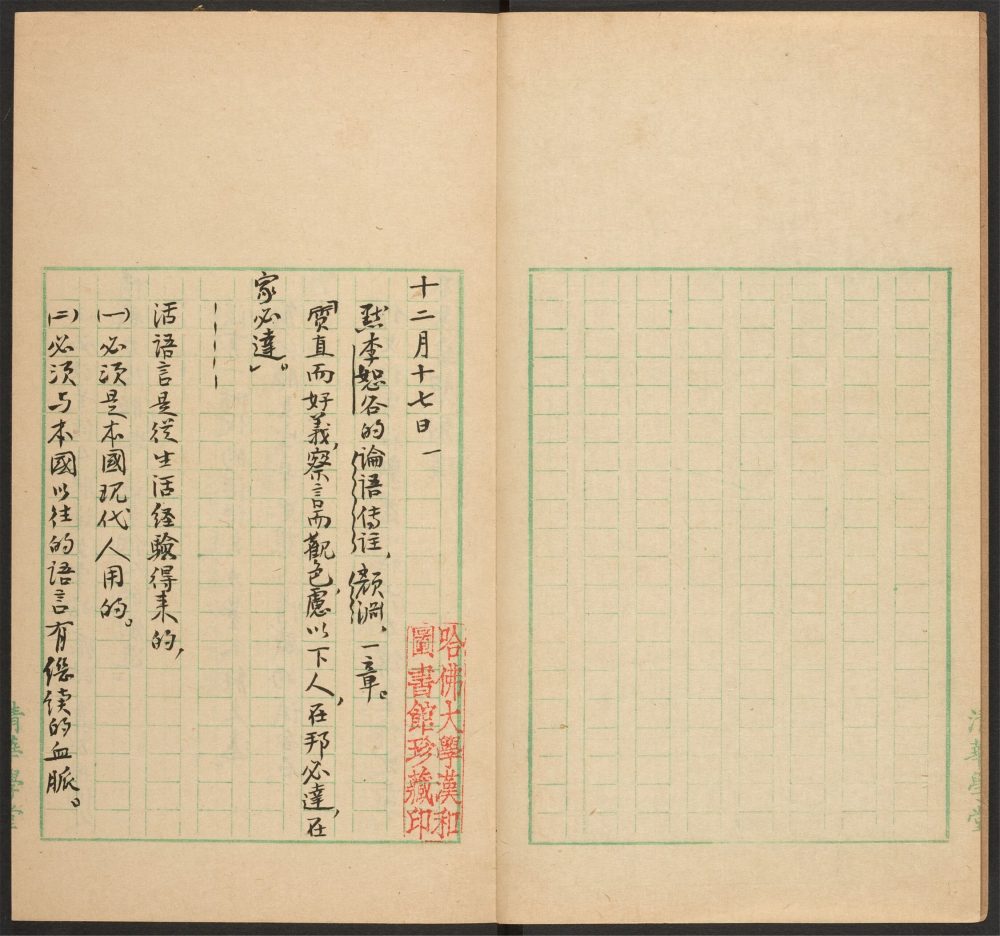 十二月十七日 一
點李恕谷的論語傳注，顏淵，一章。
「質直而好義，察言而觀色，慮以下人，在邦必達，在
家必達。」
活語言是從生活經驗得來的，
(一)必須是本國現代人用的。
(二)必須与本國以往的語言有繼续的血脈。
哈佛大學漢和
圖書館珍藏印
清華學堂
清華學堂